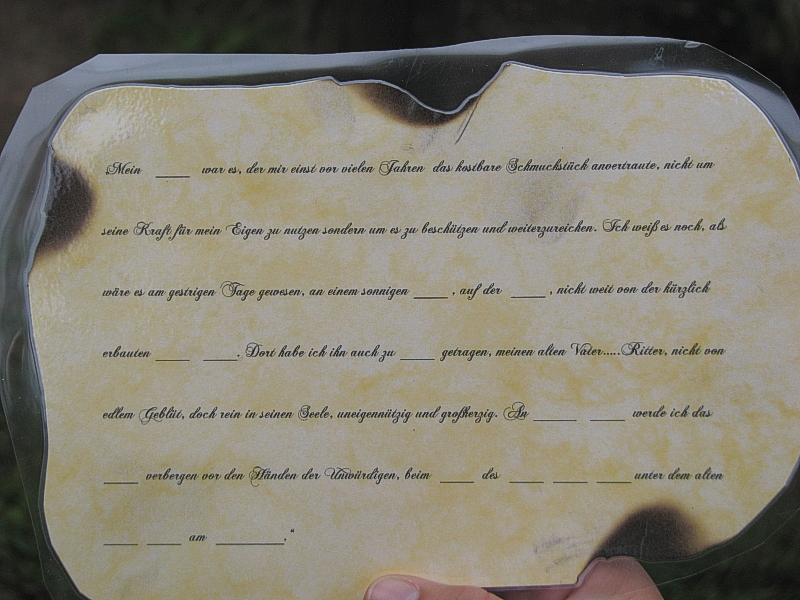 Mein ____ war es, der mir einst vor vielen Jahren das kostbare Schmuckstück anvertraute, nicht um
seine Kraft für mein Eigen zu nutzen sondern um es zu beschützen und weiterzureichen. Ich weiß es noch, als
wäre es am gestrigen Tage gewesen, an einem sonnigen ____, auf der ____, nicht weit von der kürzlich
erbauten ____ ____. Dort habe ich ihn auch zu ____ getragen, meinen alten Vater.....Ritter, nicht von
edlem Geblüt, doch rein in seinen Seele, uneigennützig und großherzig. An _____ ____ werde ich das
____ verbergen vor den Händen der Unwürdigen, beim ____ des ____ ____ ____ unter dem alten
____ ____ am ________."